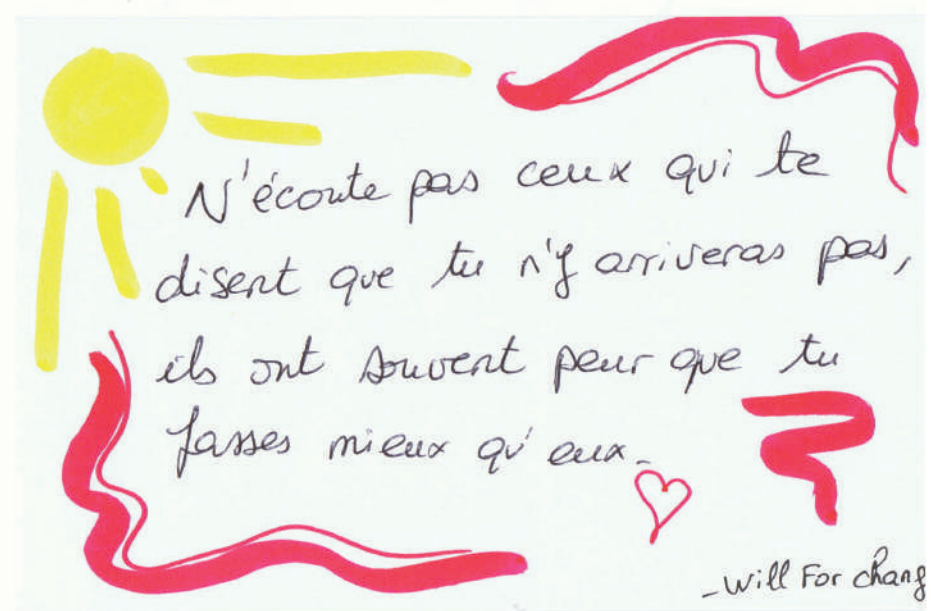 N'écoute pas ceux qui te
disent que tu n'y arriveras pas,
ils ont souvent peur que tu
fasses mieux qu'eux.
-Will For chang